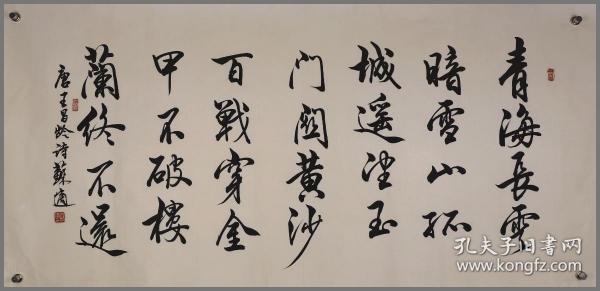 青海長雲
暗雪山孤
城遥望玉
門關黄沙
百戰穿金
甲不破樓
蘭終不還
唐王昌齡詩蘇適
孔夫子旧書网
www.kongfz.com